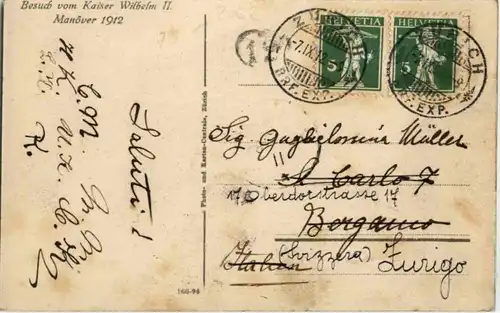 Besuch vom Kaiser Wilhelm II.
Manöver 1912
Saluti!
Photo- und Karten-Centrale, Zürich
166-94
HELVETIA
5
HELVETIA
5
ZÜRICH
7.IX.12
BRF.EXP.
Sig Guglielmina Müller
S. Carlo 7
17 Oberdorstrasse 17
Bergamo
(Svizzera)
Italia Zurigo